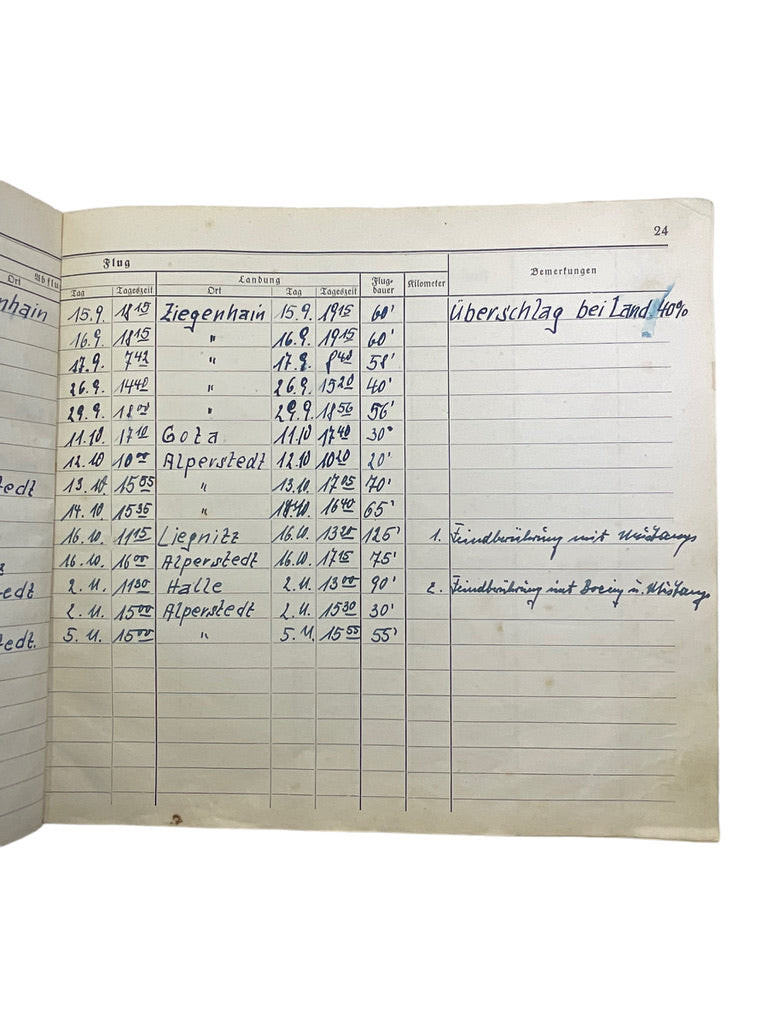 24
Flug
Ort Abflu
Landung
Flug-
dauer
Kilometer
Bemerkungen
Tag Tageszeit Ort Tag Tageszeit
nhain 15.9. 18 15 Ziegenhain 15.9. 19 15 60' Überschlag bei Land. 40%
16.9. 18 15 " 16.9. 19 15 60'
17.9. 7 42 " 17.9. 8 40 58'
26.9. 14 40 " 26.9. 15 20 40'
29.9. 18 00 " 29.9. 18 56 56'
11.10 17 10 Gota 11.10 17 40 30'
12.10 10 00 Alperstedt 12.10 10 20 20'
tedt 13.10. 15 55 " 13.10. 17 05 70'
14.10 15 35 " 14.10. 16 40 65'
16.10. 11 15 Liegnitz 16.10. 13 20 125' 1. Feindberührung mit Mustangs
16.10. 16 00 Alperstedt 16.10. 17 15 75'
edt 2.11. 11 30 Halle 2.11. 13 00 90' 2. Feindberührung mit Boeing u. Mustangs
2.11. 15 00 Alperstedt 2.11. 15 30 30'
tedt. 5.11. 15 00 " 5.11. 15 55 55'